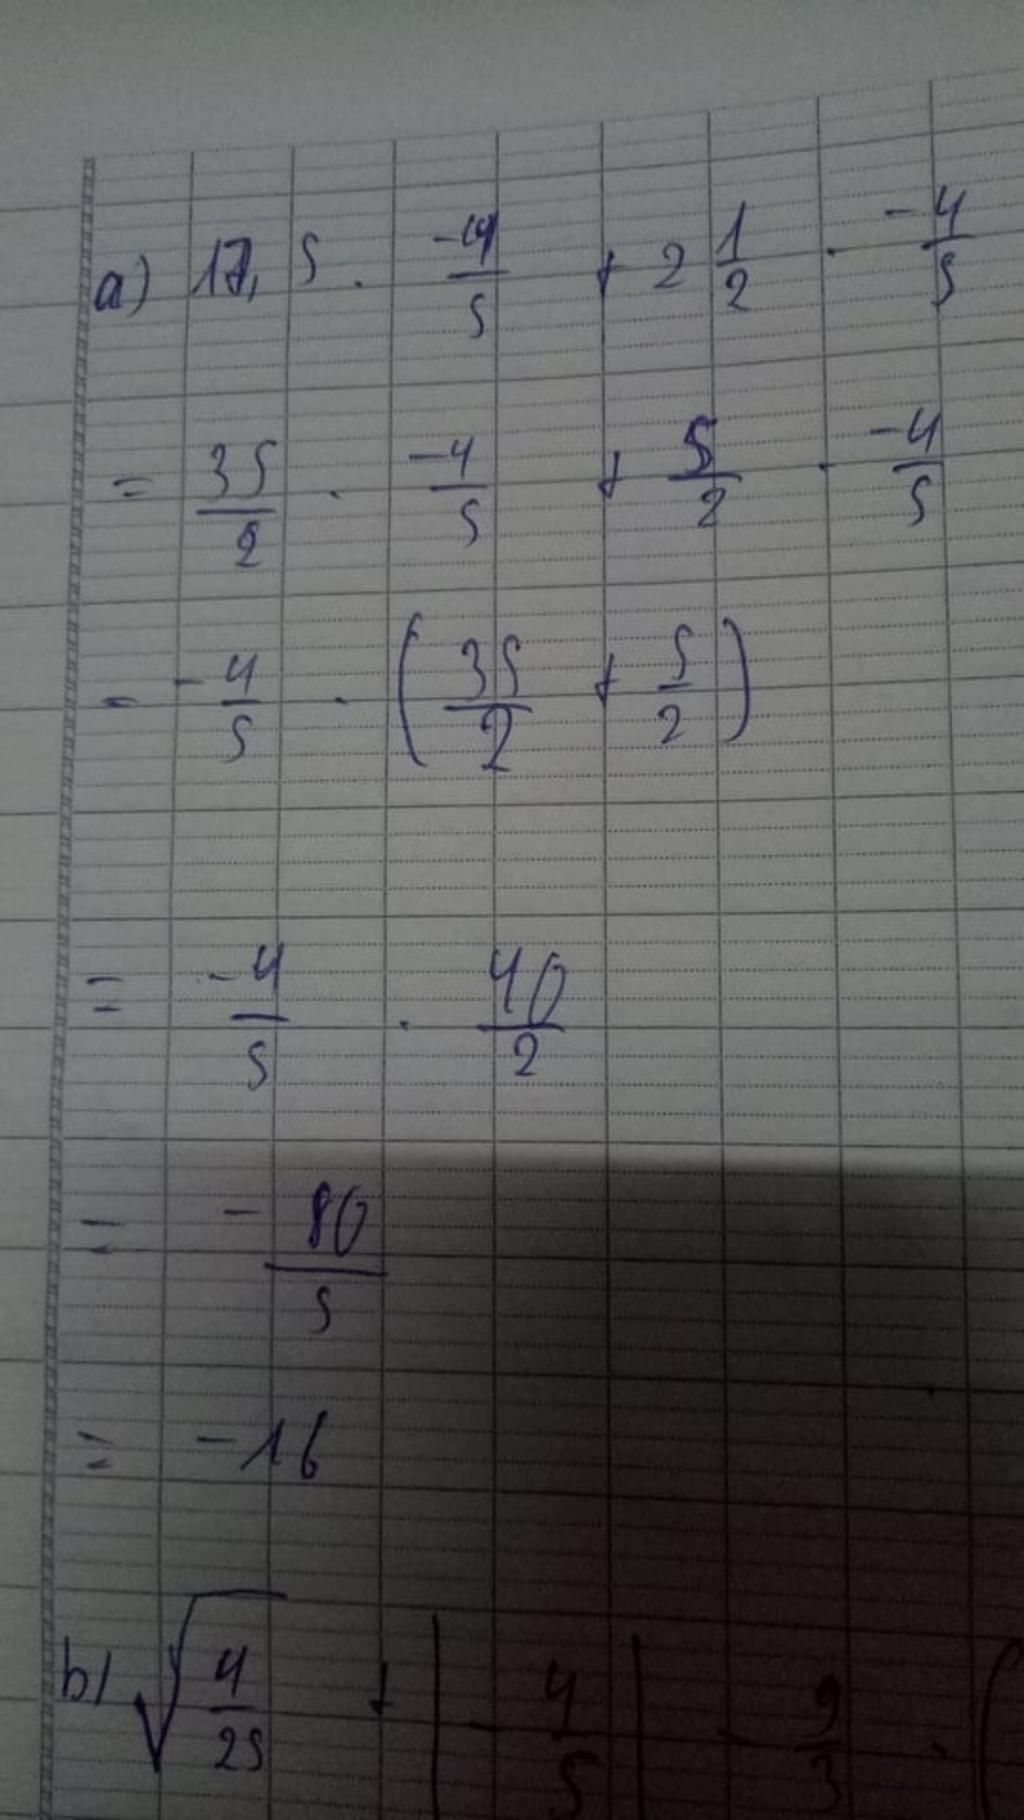 a) 17,5 . -4/5 + 2 1/2 . -4/5
= 35/2 . -4/5 + 5/2 . -4/5
= -4/5 . (35/2 + 5/2)
= -4/5 . 40/2
= - 80/5
= -16
b) √4/25 + |-4/5| - 9/3 . (